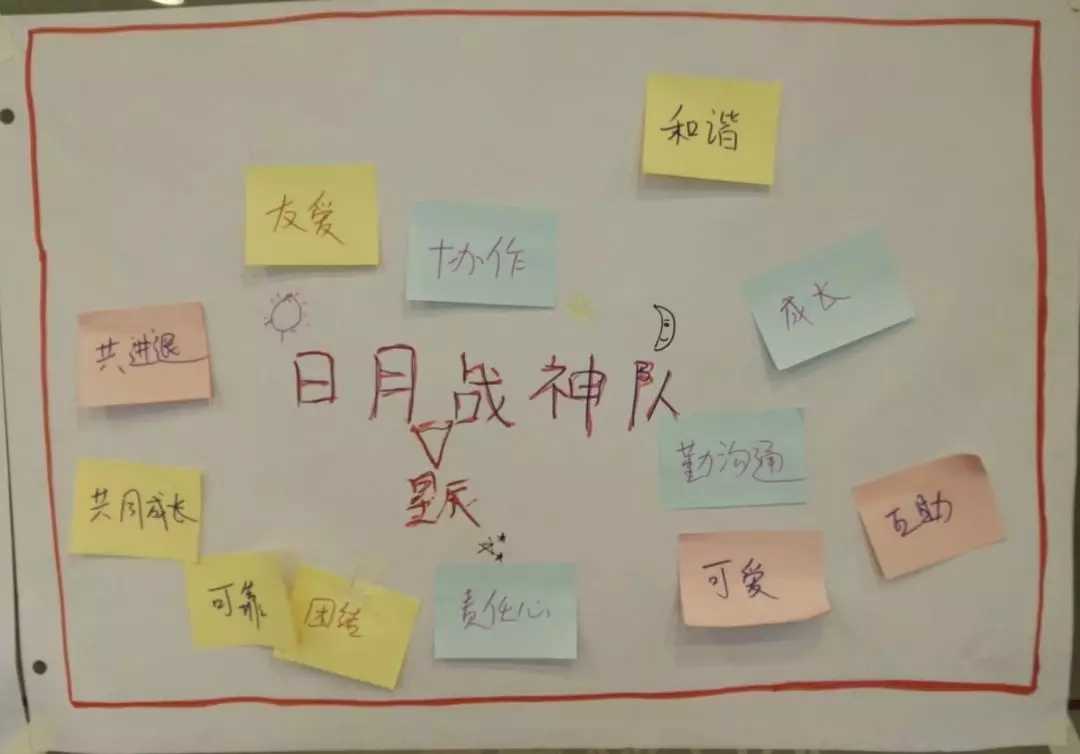 和谐
友爱
协作
成长
共进退
日月战神队
星辰
勤沟通
共同成长
互助
可靠
团结
责任心
可爱